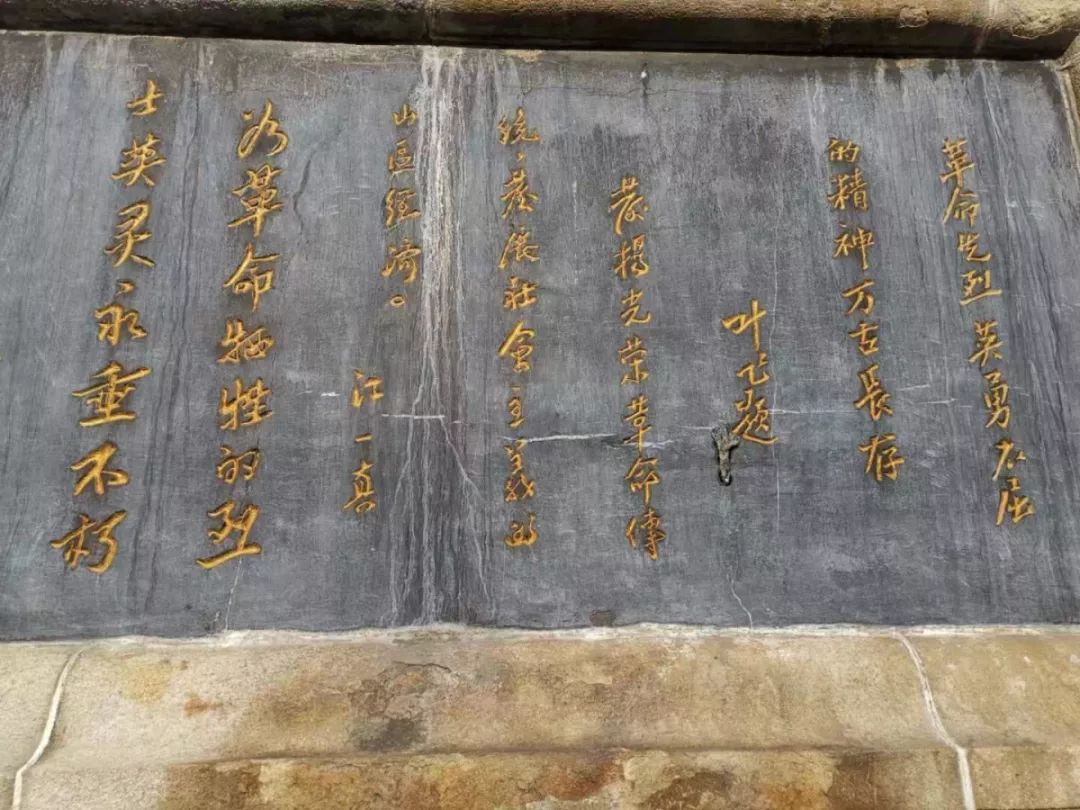 革命先烈英勇不屈
的精神万古長存
叶飞题
发揚光荣革命傳
统、发展社会主义的
山區经济。
江一真
为革命牺牲的烈
士英灵、永垂不朽